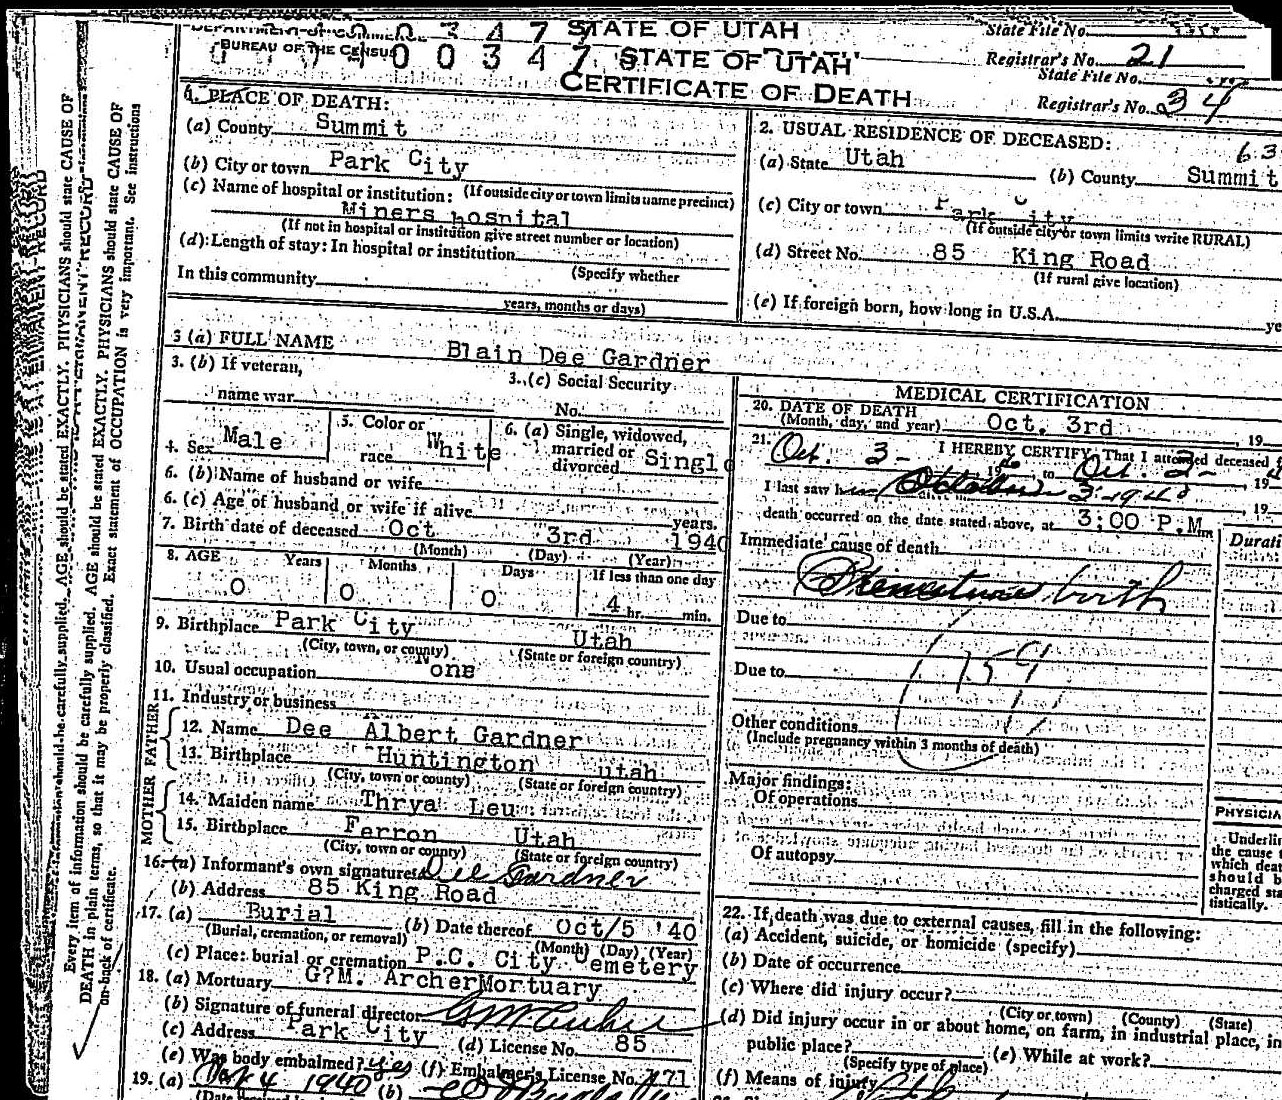 STATE OF UTAH
State File No.
BUREAU OF THE CENSUS
00347
STATE OF UTAH
Registrar's No. 21
State File No.
CERTIFICATE OF DEATH
Registrar's No. 34
1. PLACE OF DEATH:
(a) County Summit
(b) City or town Park City
(If outside city or town limits name precinct)
(c) Name of hospital or institution:
Miners hospital
(If not in hospital or institution give street number or location)
(d) Length of stay: In hospital or institution
(Specify whether
In this community
years, months or days)
2. USUAL RESIDENCE OF DECEASED:
63
(a) State Utah (b) County Summit
(c) City or town Park City
(If outside city or town limits write RURAL)
(d) Street No. 85 King Road
(If rural give location)
(e) If foreign born, how long in U.S.A.
3 (a) FULL NAME Blain Dee Gardner
3. (b) If veteran,
name war
3. (c) Social Security
No.
4. Sex Male
5. Color or
race White
6. (a) Single, widowed,
married or
divorced Single
6. (b) Name of husband or wife
6. (c) Age of husband or wife if alive years.
7. Birth date of deceased Oct 3rd 1940
(Month) (Day) (Year)
8. AGE Years Months Days If less than one day
0 0 0 4 hr. min.
9. Birthplace Park City Utah
(City, town, or county) (State or foreign country)
10. Usual occupation None
11. Industry or business
FATHER
12. Name Dee Albert Gardner
13. Birthplace Huntington utah
(City, town or county) (State or foreign country)
MOTHER
14. Maiden name Thrya Leu
15. Birthplace Ferron Utah
(City, town or county) (State or foreign country)
16. (a) Informant's own signature Dee Gardner
(b) Address 85 King Road
17. (a) Burial (b) Date thereof Oct/5 '40
(Burial, cremation, or removal) (Month) (Day) (Year)
(c) Place: burial or cremation P.C. City Cemetery
18. (a) Mortuary G?M. Archer Mortuary
(b) Signature of funeral director G M Archer
(c) Address Park City (d) License No. 85
(e) Was body embalmed? yes (f) Embalmer's License No. 171
19. (a) 4 1940 (b)
MEDICAL CERTIFICATION
20. DATE OF DEATH
(Month, day, and year) Oct. 3rd, 19
21. I HEREBY CERTIFY, That I attended deceased
Oct. 3- 1940 to Oct. 3- 19
I last saw him October 3 1940 19
death occurred on the date stated above, at 3;00 P.M.m
Immediate cause of death
Premature birth
Due to
Due to
159
Other conditions
(Include pregnancy within 3 months of death)
Major findings:
Of operations
Of autopsy
Durati
PHYSICIA
Underlin
the cause t
which deat
should b
charged sta
tistically.
22. If death was due to external causes, fill in the following:
(a) Accident, suicide, or homicide (specify)
(b) Date of occurrence
(c) Where did injury occur?
(City or town) (County) (State)
(d) Did injury occur in or about home, on farm, in industrial place, in
public place? (e) While at work?
(Specify type of place)
(f) Means of injury
Every item of information should be carefully supplied. AGE should be stated EXACTLY. PHYSICIANS should state CAUSE OF
DEATH in plain terms, so that it may be properly classified. Exact statement of OCCUPATION is very important. See instructions
on back of certificate.